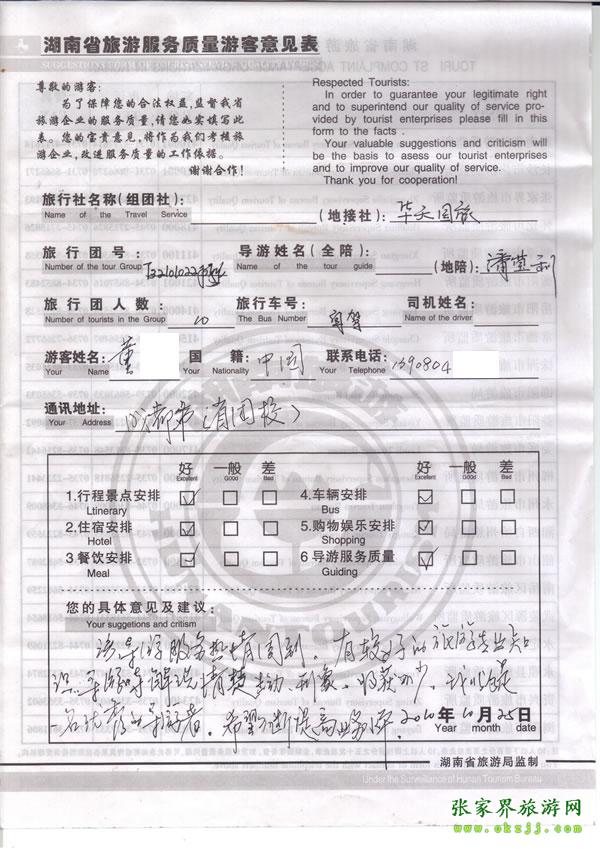 湖南省旅游服务质量游客意见表
尊敬的游客:
为了保障您的合法权益,监督我省
旅游企业的服务质量,请您如实填写此
表。您的宝贵意见,将作为我们考核旅
游企业,改进服务质量的工作依据。
谢谢合作!
Respected Tourists:
In order to guarantee your legitimate right
and to superintend our quality of service pro-
vided by tourist enterprises please fill in this
form to the facts .
Your valuable suggestions and criticism will
be the basis to asess our tourist enterprises
and to improve our quality of service.
Thank you for cooperation!
旅行社名称(组团社): (地接社): 华天国旅
Name of the Travel Service
旅行团号: 导游姓名(全陪): (地陪):
Number of the tour Group Name of the tour guide
旅行团人数: 10 旅行车号: 司机姓名:
Number of tourists in the Group The Bus Number Name of the driver
游客姓名: 董 国籍: 中国 联系电话: 1390804
Your Name Your Nationality Your Telephone
通讯地址: 成都市 (省团校)
Your Address
好 一般 差 好 一般 差
Excellent Good Bad Excellent Good Bad
1.行程景点安排 4.车辆安排
Ltinerary Bus
2.住宿安排 5.购物娱乐安排
Hotel Shopping
3 餐饮安排 6 导游服务质量
Meal Guiding
您的具体意见及建议:
Your suggetions and critism
该导游服务热情周到,有较好的旅游专业知
识,导游讲解清楚生动、形象。收获不少,
一名优秀的导游者。希望不断提高业务水平。 2010年10月25日
Year month date
湖南省旅游局监制
Under the Surveillance of Hunan Tourism Bureau
张家界旅游网
www.okzjj.com